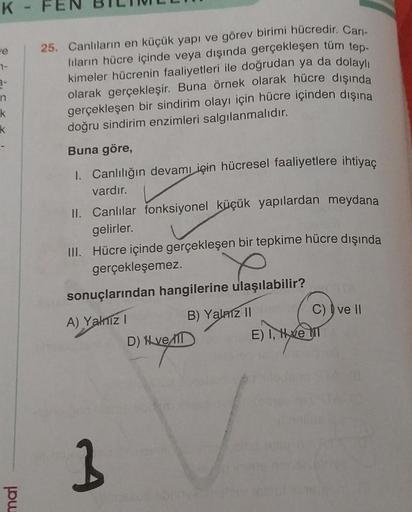 K - FEN BİLİML
25. Canlıların en küçük yapı ve görev birimi hücredir. Can-
lıların hücre içinde veya dışında gerçekleşen tüm tep-
kimeler hücrenin faaliyetleri ile doğrudan ya da dolaylı
olarak gerçekleşir. Buna örnek olarak hücre dışında
gerçekleşen bir sindirim olayı için hücre içinden dışına
doğru sindirim enzimleri salgılanmalıdır.
Buna göre,
I. Canlılığın devamı için hücresel faaliyetlere ihtiyaç
vardır.
II. Canlılar fonksiyonel küçük yapılardan meydana
gelirler.
III. Hücre içinde gerçekleşen bir tepkime hücre dışında
gerçekleşemez.
sonuçlarından hangilerine ulaşılabilir?
A) Yalnız I B) Yalnız II C) I ve II
D) II ve III E) I, II ve III
B
mal